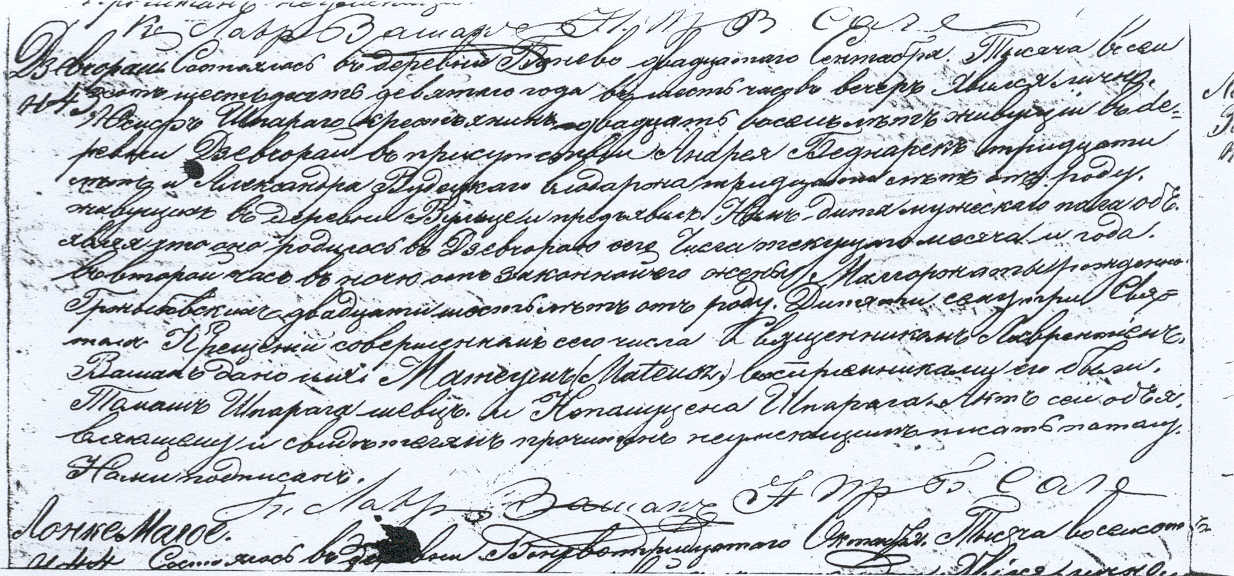 К. Лавр Вашакъ Н. Пр. В Соле
Дзевгораи Состоялось въ деревни Бонево двадцатаго Сентабра. Тысача восем
N 43 сотъ шестьдесятъ девятаго года въ шесть часовъ вечеръ Явился лично.
Юзефъ Шпарага крестьянинъ двадцать восемь лѣтъ живущи въ де=
ревни Дзевгораи въ присутствеи Андрея Беднарекъ тридцати
лѣтъ и Александра Рудецкаго влодаржа тридцати лѣтъ отъ роду.
живущихъ въ деревни и предъявилъ Намъ дита мужескаго пола объ
являя что оно родилось въ Дзевгораю сего Числа текущаго месяча и года.
во второи часъ въ ночю отъ законнои его жены Малгоржаты рожденно
двадцати шость лѣтъ отъ роду. Дитяти сему при Свя=
томъ Крещении совершенномъ сего числа Священникомъ Лаврентіемъ.
Вашакъ дано имя. Матеушъ (Mateusz) воспріемниками его были.
Томашъ Шпарага шевцъ. и Шпарага. Актъ сеи объя.
вляющему и свидѣтелямъ прочитанъ неумеющимъ писать патому.
Нами подписанъ.
К. Лавр. Вашакъ Н Пр Б Соле
Лонке Малое.
N 44 Состоялось въ деревни Бонево тридцатаго Октабра. Тысяча восемсотъ